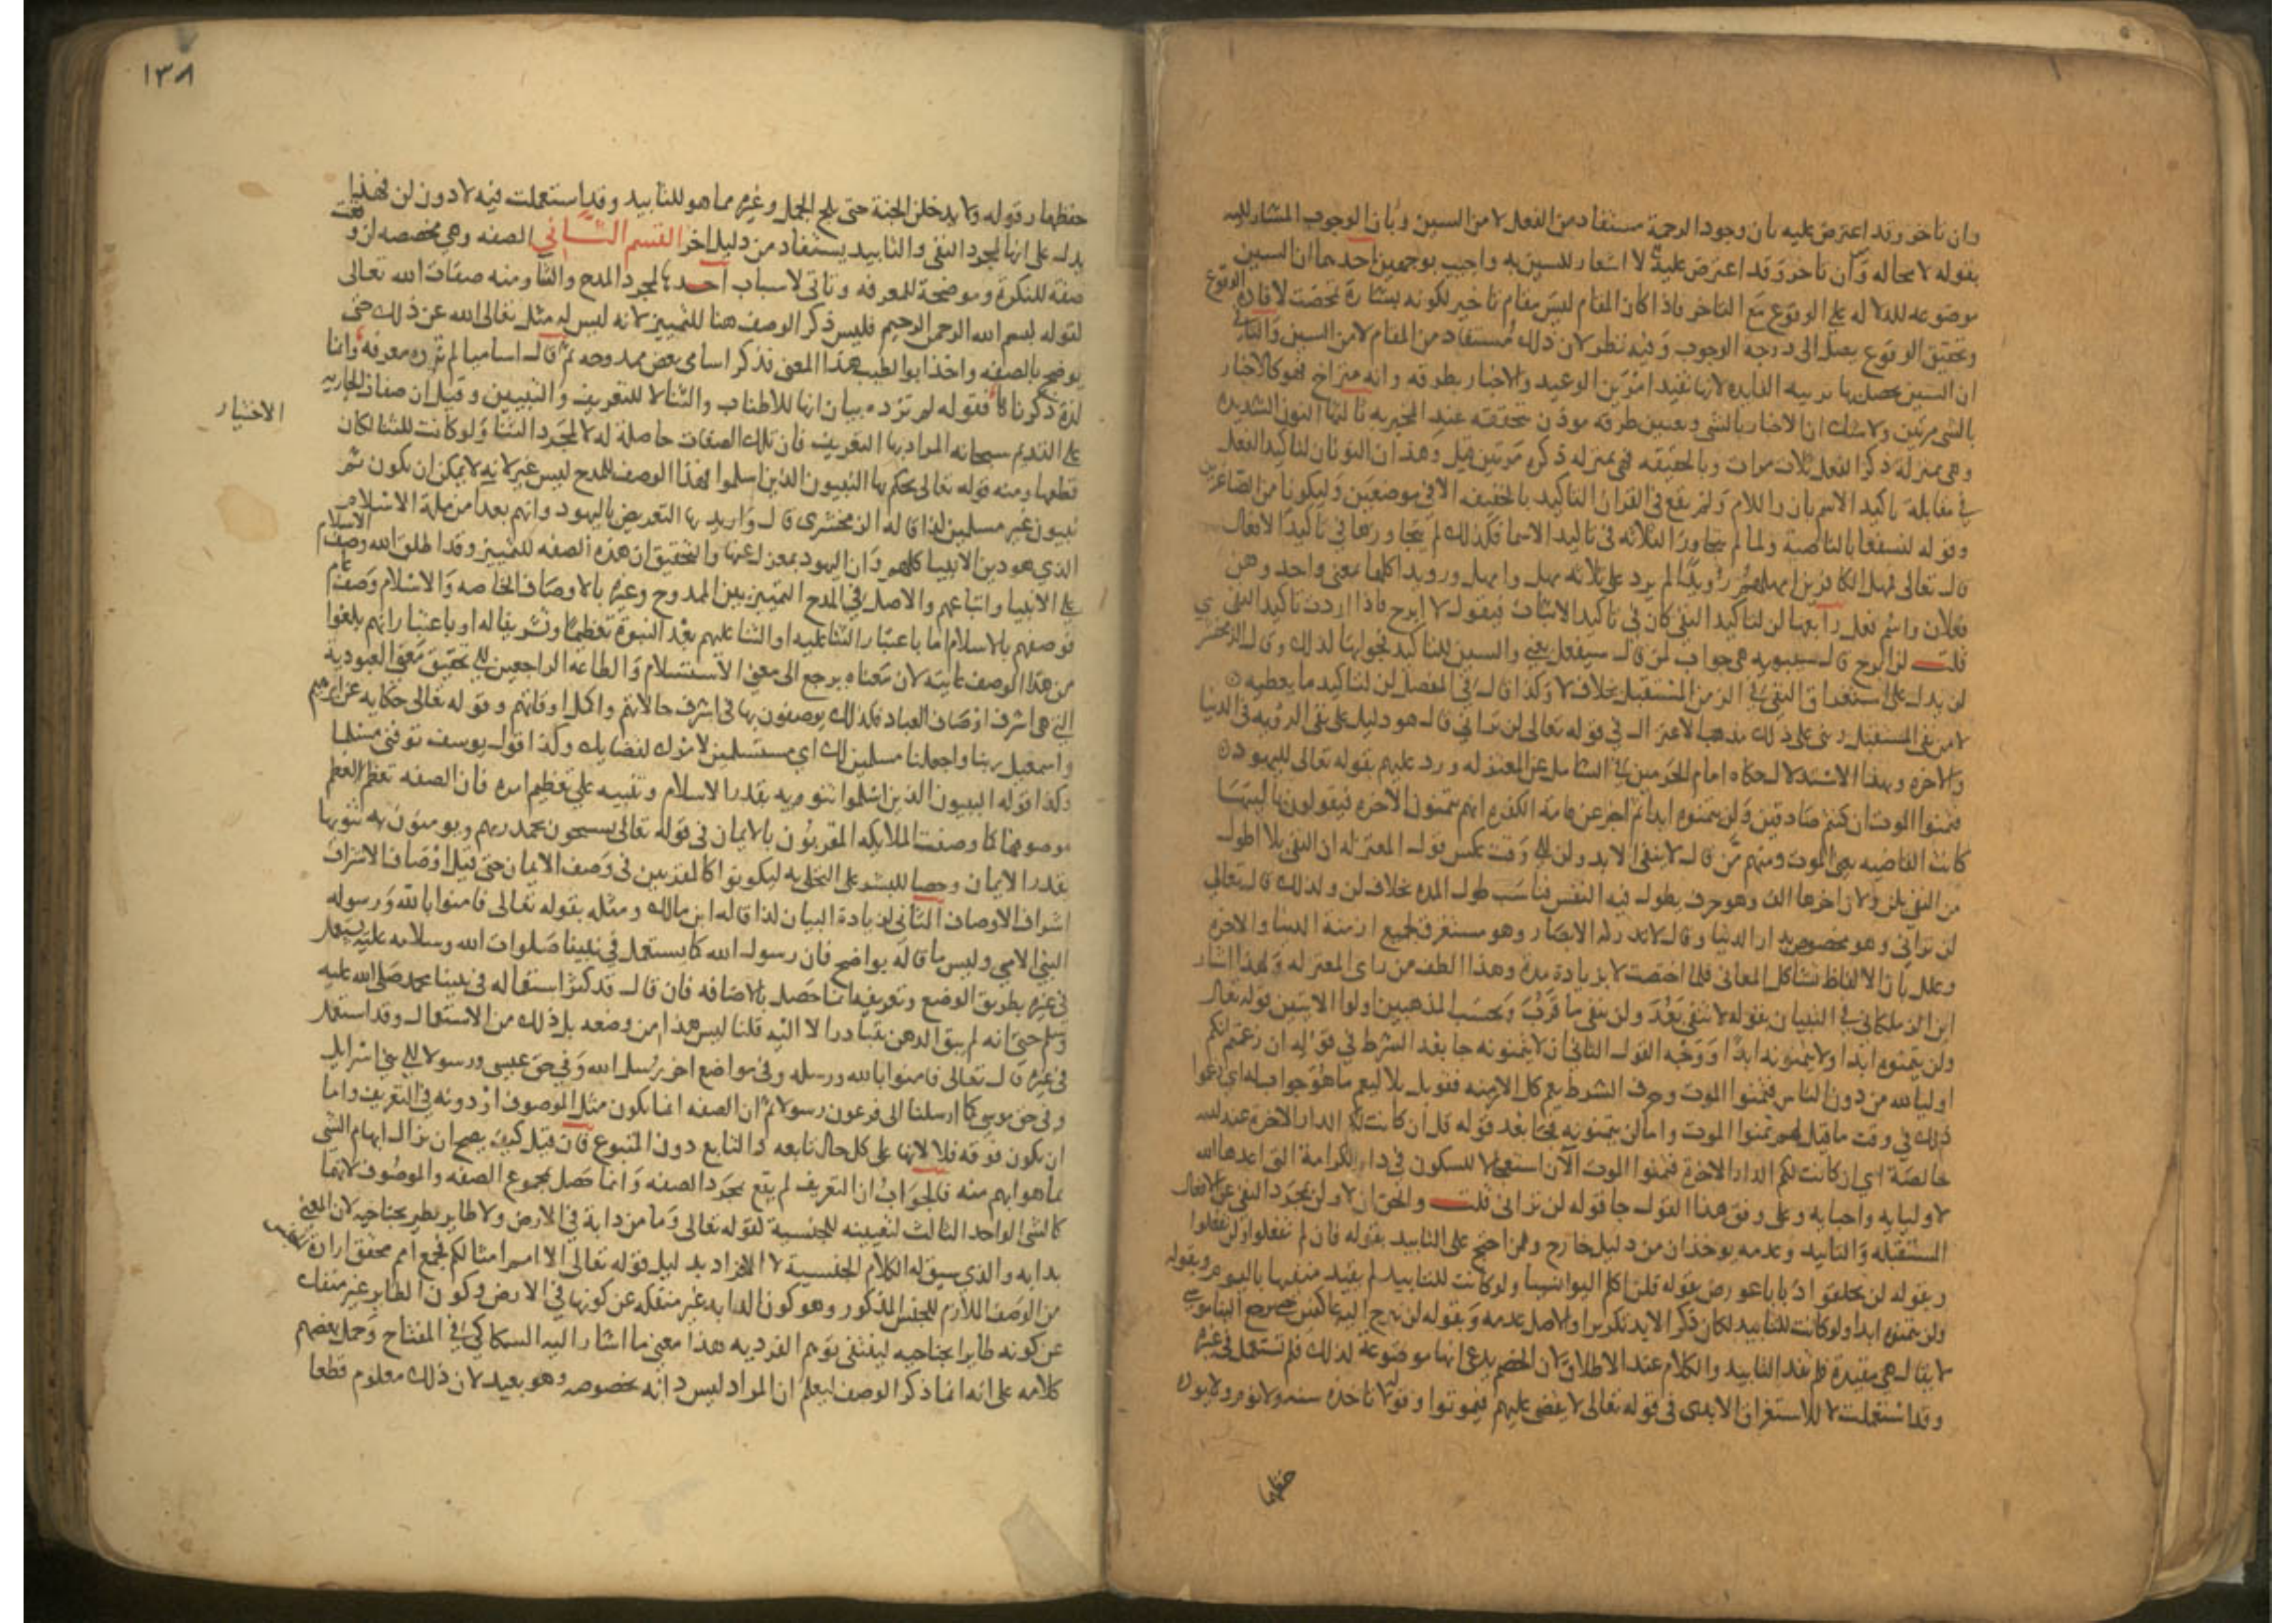 وان تاخر وقد اعترض عليه بان وجود الرحمة مستفاد من الفعل لا من السين وبان الوجوب المشار اليه
بقوله لا محاله وان تاخر وقد اعترض عليه لا اشعار للسين به واجيب بوجهين احدهما ان السين
موضوعه للدلاله على الوقوع مع التاخر فاذا كان المقام ليس مقام تاخير لكونه بشارة تمحضت لافادة الوقوع
وتحقيق الوقوع يصل الى درجة الوجوب وفيه نظر لان ذلك مستفاد من المقام لا من السين والثاني
ان السين يحصل بها ترتيب الفايده لانها تفيد امرين الوعيد والاخبار بطرقه وانه متراخ فهو كالاخبار
بالشي مرتين ولا شك ان الاخبار بالشي وتعيين طرقه موذن بتحققه عند المخبر به ثالثها النون الشديده
وهي بمنزلة ذكر الفعل ثلاث مرات وبالخفيفه فهي بمنزله ذكره مرتين قيل وهذان النونان لتاكيد الفعل
في مقابلة تاكيد الاسم بان واللام ولم يقع في القران التاكيد بالخفيفه الا في موضعين وليكونا من الصاغرين
وقوله لنسفعا بالناصية ولما لم يتجاوز الثلاثه في تاكيد الاسما فكذلك لم يتجاوزها في تاكيد الافعال
قال تعالى فمهل الكافرين امهلهم رويدا لم يزد على ثلاثه مهل وامهل ورويدا كلها بمعنى واحد وهن
فعلان واسم فعل رابعها لن لتاكيد النفي كان في تاكيد الاثبات فيقول لا ابرح فاذا اردت تاكيد النفي
قلت لن ابرح قال سيبويه هي جواب لمن قال سيفعل يعني والسين للتاكيد فجوابها لذلك وقال الزمخشري
لن يدل على استغراق النفي في الزمن المستقبل بخلاف لا وكذا قال في المفصل لن لتاكيد ما يعطيه
لا من نفي المستقبل وبنى على ذلك مذهب الاعتزال في قوله تعالى لن تراني قال هو دليل على نفي الرويه في الدنيا
والاخره وبهذا الاستدلال حكاه امام الحرمين في الشامل عن المعتزله ورد عليهم بقوله تعالى لليهود
فتمنوا الموت ان كنتم صادقين ولن يتمنوه ابدا ثم اخبر عن عامة الكفره انهم يتمنون الاخره فيقولون يا ليتها
كانت القاضيه يعني الموت ومنهم من قال لا ينفي الابد ولن الى وقت عكس قول المعتزله ان النفي بلا اطول
من النفي بلن ولان اخرها الف وهو حرف يطول فيه النفس فناسب طول المده بخلاف لن ولذلك قال تعالى
لن تراني وهو مخصوص بدار الدنيا وقال لا تدركه الابصار وهو مستغرق لجميع ازمنة الدنيا والاخره
وعلل بان الالفاظ تشاكل المعاني فلذا اختصت لا بزيادة مدة وهذا الطف من راى المعتزله ولهذا اشار
ابن الزملكاني في التبيان بقوله لا تنفي بعد ولن تنفي ما قرب وبحسب المذهبين اولوا الايتين قوله تعالى
ولن يتمنوه ابدا ولا يتمنونه ابدا ووجه القول الثاني ان لا يتمنونه جا بعد الشرط في قوله ان زعمتم انكم
اوليا لله من دون الناس فتمنوا الموت وحرف الشرط يعم كل الازمنه فقوبل بلا ليعم ما هو جواب له اي زعموا
ذلك في وقت ما قيل لهم تمنوا الموت واما لن يتمنوه فجا بعد قوله قل ان كانت لكم الدار الاخرة عند الله
خالصة اي ان كانت لكم الدار الاخرة فتمنوا الموت الآن استعجالا للسكون في دار الكرامة التي اعدها الله
لاوليايه واحبايه وعلى وفق هذا القول جا قوله لن تراني قلت والحق ان لا ولن لمجرد النفي عن الافعال
المستقبله والتابيد وعدمه يوخذان من دليل خارج ومن احتج على التابيد بقوله فان لم تفعلوا ولن تفعلوا
وبقوله لن يخلقوا ذبابا عورض بقوله فلن اكلم اليوم انسيا ولو كانت للتابيد لم يقيد منفيها باليوم وبقوله
ولن يتمنوه ابدا ولو كانت للتابيد لكان ذكر الابد تكريرا والاصل عدمه وبقوله لن نبرح عليه عاكفين حتى يرجع الينا موسى
لا يقال هي مقيدة فلم تفد التابيد والكلام عند الاطلاق لان الخصم يدعي انها موضوعة لذلك فلم تستعمل في غيره
وقد استعملت لا للاستغراق الابدي في قوله تعالى لا يقضى عليهم فيموتوا وقوله لا تاخذه سنه ولا نوم ولا يوده
حفظهما
١٣٨
حفظهما وقوله ولا يدخلون الجنة حتى يلج الجمل وغيره مما هو للتابيد وقد استعملت فيه لا دون لن فهذا
يدل على انها لمجرد النفي والتابيد يستفاد من دليل اخر القسم الثاني الصفه وهي مخصصه ان وقعت
صفة للنكرة وموضحة للمعرفه وتاتي لاسباب احدها لمجرد المدح والثنا ومنه صفات الله تعالى
كقوله بسم الله الرحمن الرحيم فليس ذكر الوصف هنا للتمييز لانه ليس له مثل تعالى الله عن ذلك حتى
يوضح بالصفه واخذ ابو الطيب هذا المعنى فذكر اسامي بعض ممدوحه ثم قال اساميا لم تزده معرفه وانما
لذة ذكرناها فقوله لم تزده بيان انها للاطناب والثنا لا للتعريف والتبيين وقيل ان صفات الجاريه
على القديم سبحانه المراد بها التعريف فان تلك الصفات حاصلة له لا لمجرد الثنا ولو كانت للثنا لكان
الاختيار
قطعها ومنه قوله تعالى يحكم بها النبيون الذين اسلموا فهذا الوصف للمدح ليس غير لانه لا يمكن ان يكون ثم
نبيون غير مسلمين لذا قاله الزمخشري قال واريد بها التعريض باليهود وانهم بعدا من ملة الاسلام
الذي هو دين الانبيا كلهم وان اليهود بمعزل عنها والتحقيق ان هذه الصفه للتمييز وقد اطلق الله وصف الاسلام
على الانبيا واتباعهم والاصل في المدح التمييز بين الممدوح وغيره بالاوصاف الخاصه والاسلام وصف عام
فوصفهم بالاسلام اما باعتبار الثنا عليه او الثنا عليهم بعد النبوة تعظيما وتشريفا له او باعتبار انهم بلغوا
من هذا الوصف غايته لان معناه يرجع الى معنى الاستسلام والطاعه الراجعين الى تحقيق معنى العبودية
التي هي اشرف اوصاف العباد فكذلك يوصفون بها في اشرف حالاتهم واكمل اوقاتهم وقوله تعالى حكايه عن ابراهيم
واسمعيل ربنا واجعلنا مسلمين لك اي مستسلمين لامرك لقضايك وكذا قول يوسف توفني مسلما
وكذا قوله النبيون الذين اسلموا تنويه بقدر الاسلام وتنبيه على تعظيم امره فان الصفه تعظم بعظم
موصوفها كما وصفت الملايكه المقربون بالايمان في قوله تعالى يسبحون بحمد ربهم ويومنون به تنويها
بقدر الايمان وحضا للبشر على التحلي به ليكونوا كالمقربين في وصف الايمان حتى قيل اوصاف الاشراف
اشراف الاوصاف الثاني لزيادة البيان لذا قاله ابن مالك ومثله بقوله تعالى فامنوا بالله ورسوله
النبي الامي وليس ما قاله بواضح فان رسول الله كما يستعمل في نبينا صلوات الله وسلامه عليه يستعمل
في غيره بطريق الوضع وتعريفه انما حصل بالاضافه فان قال قد كثر استعماله في نبينا محمد صلى الله عليه
وسلم حتى انه لم يبق الذهن متبادرا الا اليه قلنا ليس هذا من وضعه بل ذلك من الاستعمال وقد استعمل
في غيره قال تعالى فامنوا بالله ورسله وفي مواضع اخر رسل الله وفي حق عيسى ورسولا الى بني اسرايل
وفي حق موسى كما ارسلنا الى فرعون رسولا ثم ان الصفه انما تكون مثل الموصوف او دونه في التعريف واما
ان يكون فوقه فلا لانها على كل حال تابعه والتابع دون المتبوع فان قيل كيف يصح ان يزال ابهام الشي
بما هو ابهم منه فالجواب ان التعريف لم يقع بمجرد الصفه وانما حصل بمجموع الصفه والموصوف لانهما
كالشي الواحد الثالث لتعيينه للجنسية كقوله تعالى وما من دابة في الارض ولا طاير يطير بجناحيه لان المعنى
بدابه والذي سيق له الكلام الجنسية لا الافراد بدليل قوله تعالى الا امم امثالكم فجمع امم محقق ارادة الجنس
من الوصف اللازم للجنس المذكور وهو كون الدابه غير منفكه عن كونها في الارض وكون الطاير غير منفك
عن كونه طايرا بجناحيه لينتفي توهم الفرديه هذا معنى ما اشار اليه السكاكي في المفتاح وحمل بعضهم
كلامه على انه انما ذكر الوصف ليعلم ان المراد ليس دابه مخصوصه وهو بعيد لان ذلك معلوم قطعا